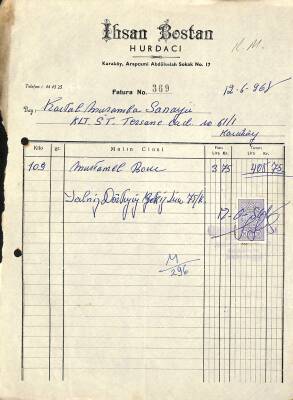 Ihsan Bostan
HURDACI
Karaköy, Arapcami Abdüsselah Sokak No. 17
K.M.
Telefon : 44 45 25
Fatura No. 369
12-6-968
Bay:
Kartal Muşamba Sanayii
KLT. ŞT. Tersane Cad. no 61/1
Karaköy
Kilo gr. Malin Cinsi Fiatı Lira Kr. Tutarı Lira Kr.
109 Mustamel Boru 3 75 408 75
Yalnız Dörtyüz Sekiz Lira 75 K.
12-6-968
M/296